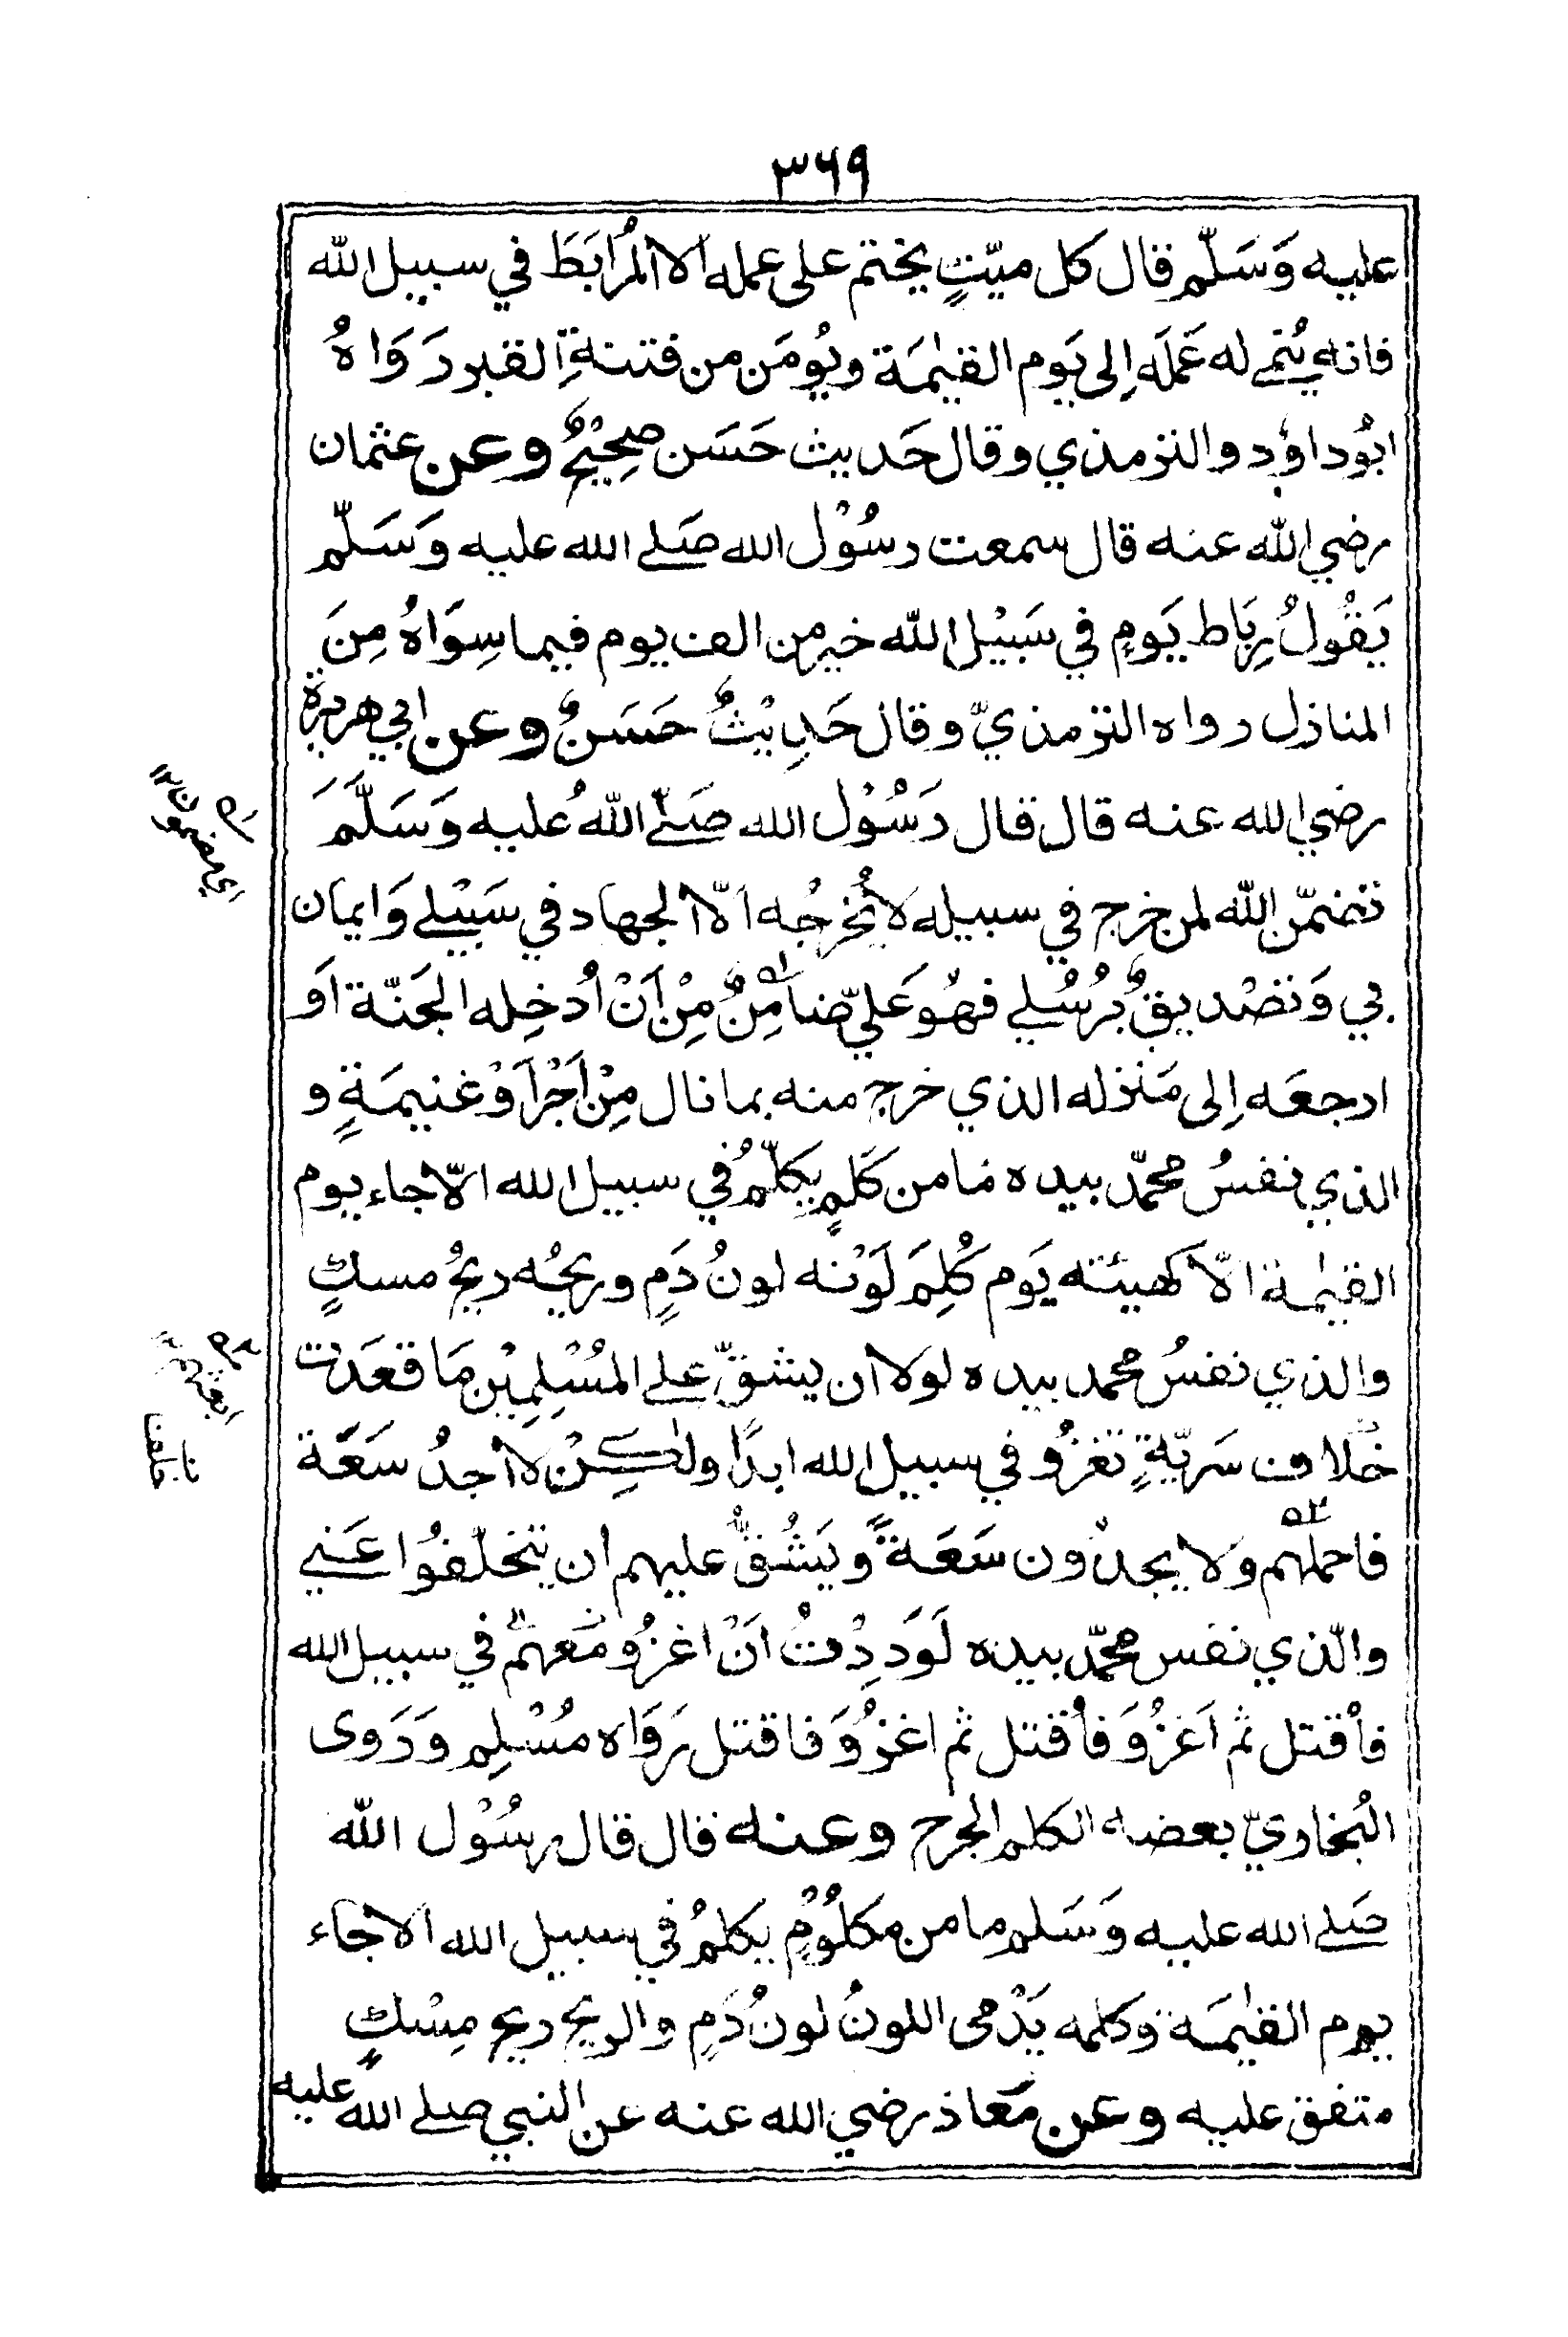 ٣٦٩
عليه وَسَلّم قال كل ميّتٍ يختم على عمله الا المُرابَطَ في سبيل الله
فانه يُنمى له عَمَله اِلى يَوم القيٰمَة ويُومَن من فتنةِ القبر رَوَاهُ
ابُوداؤد والترمذي وقال حَديث حَسَن صحِيْحٌ وعن عثمان
رضي الله عنه قال سمعت رسُوْل الله صَلے الله عليه وَسَلّم
يَقُولُ رِبَاط يَومٍ في سَبيْل الله خير من الف يوم فيما سِوَاهُ مِنَ
المنازل رواه الترمذيّ وقال حَدِيْثٌ حَسَنٌ وعن ابي هريرة
رضي الله عنه قال قال رَسُوْل الله صَلّے اللهُ عليه وَسَلَّمَ
تضمّن الله لمن خرج في سبيله لا يُخرجُه الّا الجهاد في سَبيْلے وَايمان
بي وَتصْديقٌ بُرسُلے فهُو عَلیّ ضامِنٌ مِنْ اَنْ اُدخِله الجَنّة اَو
ارجعَه اِلى مَنزله الذي خرج منه بما نال مِنْ اَجْر اَوْ غنيمَةٍ و
الذي نفسُ محمّد بيده مامن كَلمٍ يكلّمُ في سبيل الله الّا جاء يوم
القيٰمة الّا كهيئته يَوم كُلِمَ لَوْنه لونُ دَمٍ وريحُه ريحُ مسكٍ
والذي نفسُ محمد بيده لولا ان يشقّ علے المُسْلِمِيْن مَا قعَدت
خلاف سَريّةٍ تَغزُو في سبيل الله ابدًا ولٰكِنْ لا اجدُ سَعَة
فاحملهم ولا يجدُون سَعَةً وَيَشُقُّ عليهم ان يتخلّفُوا عَنے
والّذي نفس محمّد بيده لَوَدِدْتُ اَنْ اغزُو مَعهُم في سبيل الله
فاُقتل ثم اَغزُوَ فاُقتل ثم اغزُوَ فاقتل رَوَاه مُسْلِم وَرَوى
البُخاريّ بعضه الكلم الجرح وعنه قال قال رسُوْل الله
صَلے الله عليه وَسَلم مامن مكلُومٍ يكلمُ في سبيل الله الا جاء
يوم القيٰمَة وَكلمه يَدْمى اللونُ لونُ دَمٍ والريح ريح مِسْكٍ
متفق عليه وعن مَعَاذ رضي الله عنه عن النبي صلے الله عليه
اي مضمون